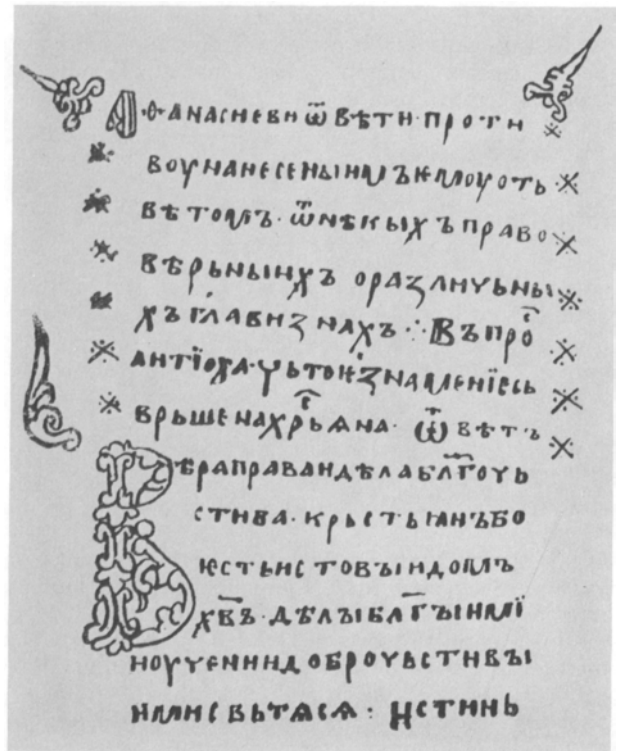 Аѳанасиеви ѿвѣти· проти
воу нанесенъıимъ ѥмоу отъ
вѣтомъ· ѿ нѣкыхъ право
вѣрьнъıихъ о разлиуьнъı
хъ главизнахъ ⁘ Въпро҇
антїоха· уьто ѥ знамениѥ съ
врьшена хр҇ьꙗна· ѿвѣтъ
Вѣра права и дѣла бл҃гоуь
стива· крьстьıанъ бо
ѥсть истовъıи домъ
хв҃ъ· дѣлъı бл҃гъıими
но уүении доброуьстивъı
ими съвьтѧсѧ· истинь